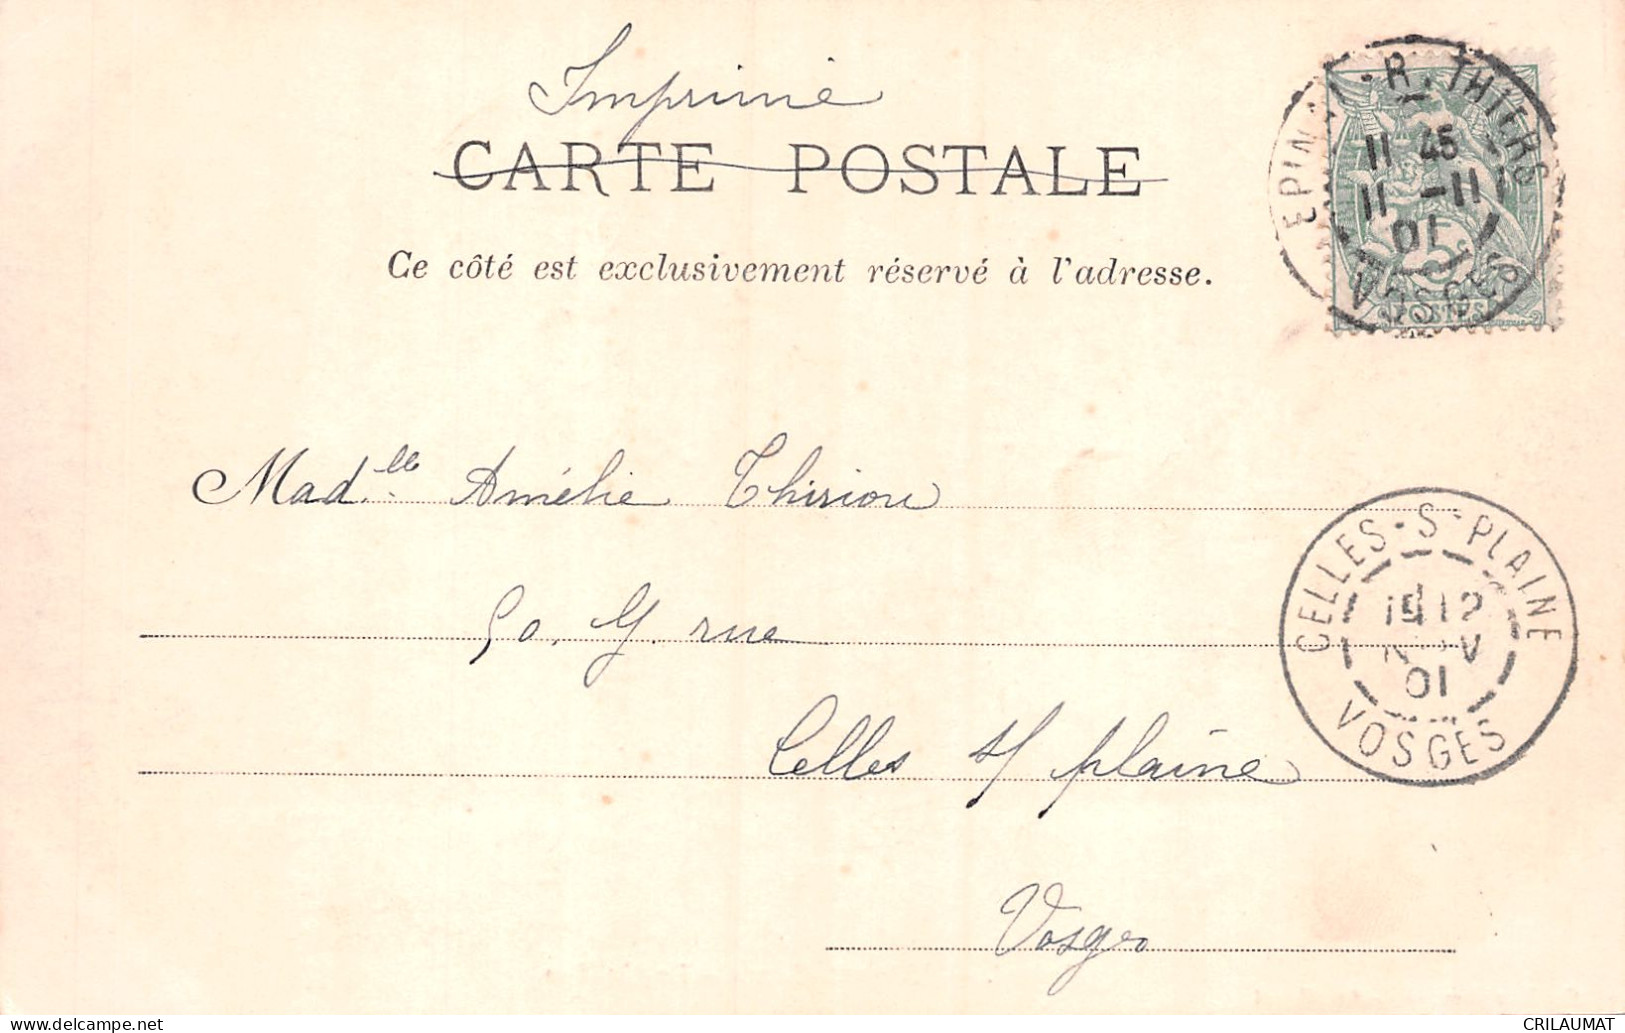 Imprimé
CARTE POSTALE
Ce côté est exclusivement réservé à l'adresse.
EPINAL - R. THIERS
11 45
11 -11
01
VOSGES
5
POSTES
Mad.lle Amélie Thirion
50, G. rue
Celles s/ plaine
Vosges
CELLES-S-PLAINE
12
NOV
01
VOSGES
CRILAUMAT